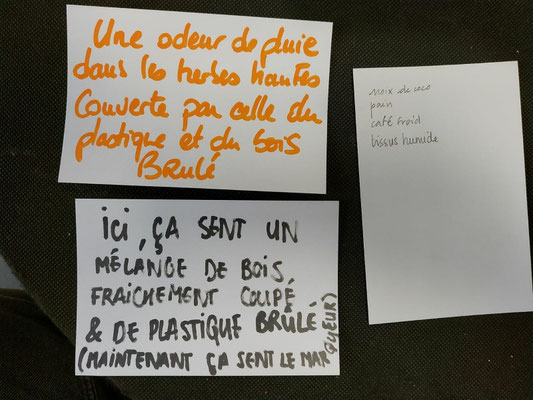 Une odeur de pluie
dans les herbes hautes
Couverte par celle du
plastique et du bois
BRULÉ
noix de coco
pain
café froid
tissus humide
ici, ÇA SENT UN
MÉLANGE DE BOIS
FRAICHEMENT COUPÉ
& DE PLASTIQUE BRÛLÉ
(MAINTENANT ÇA SENT LE MARQUEUR)